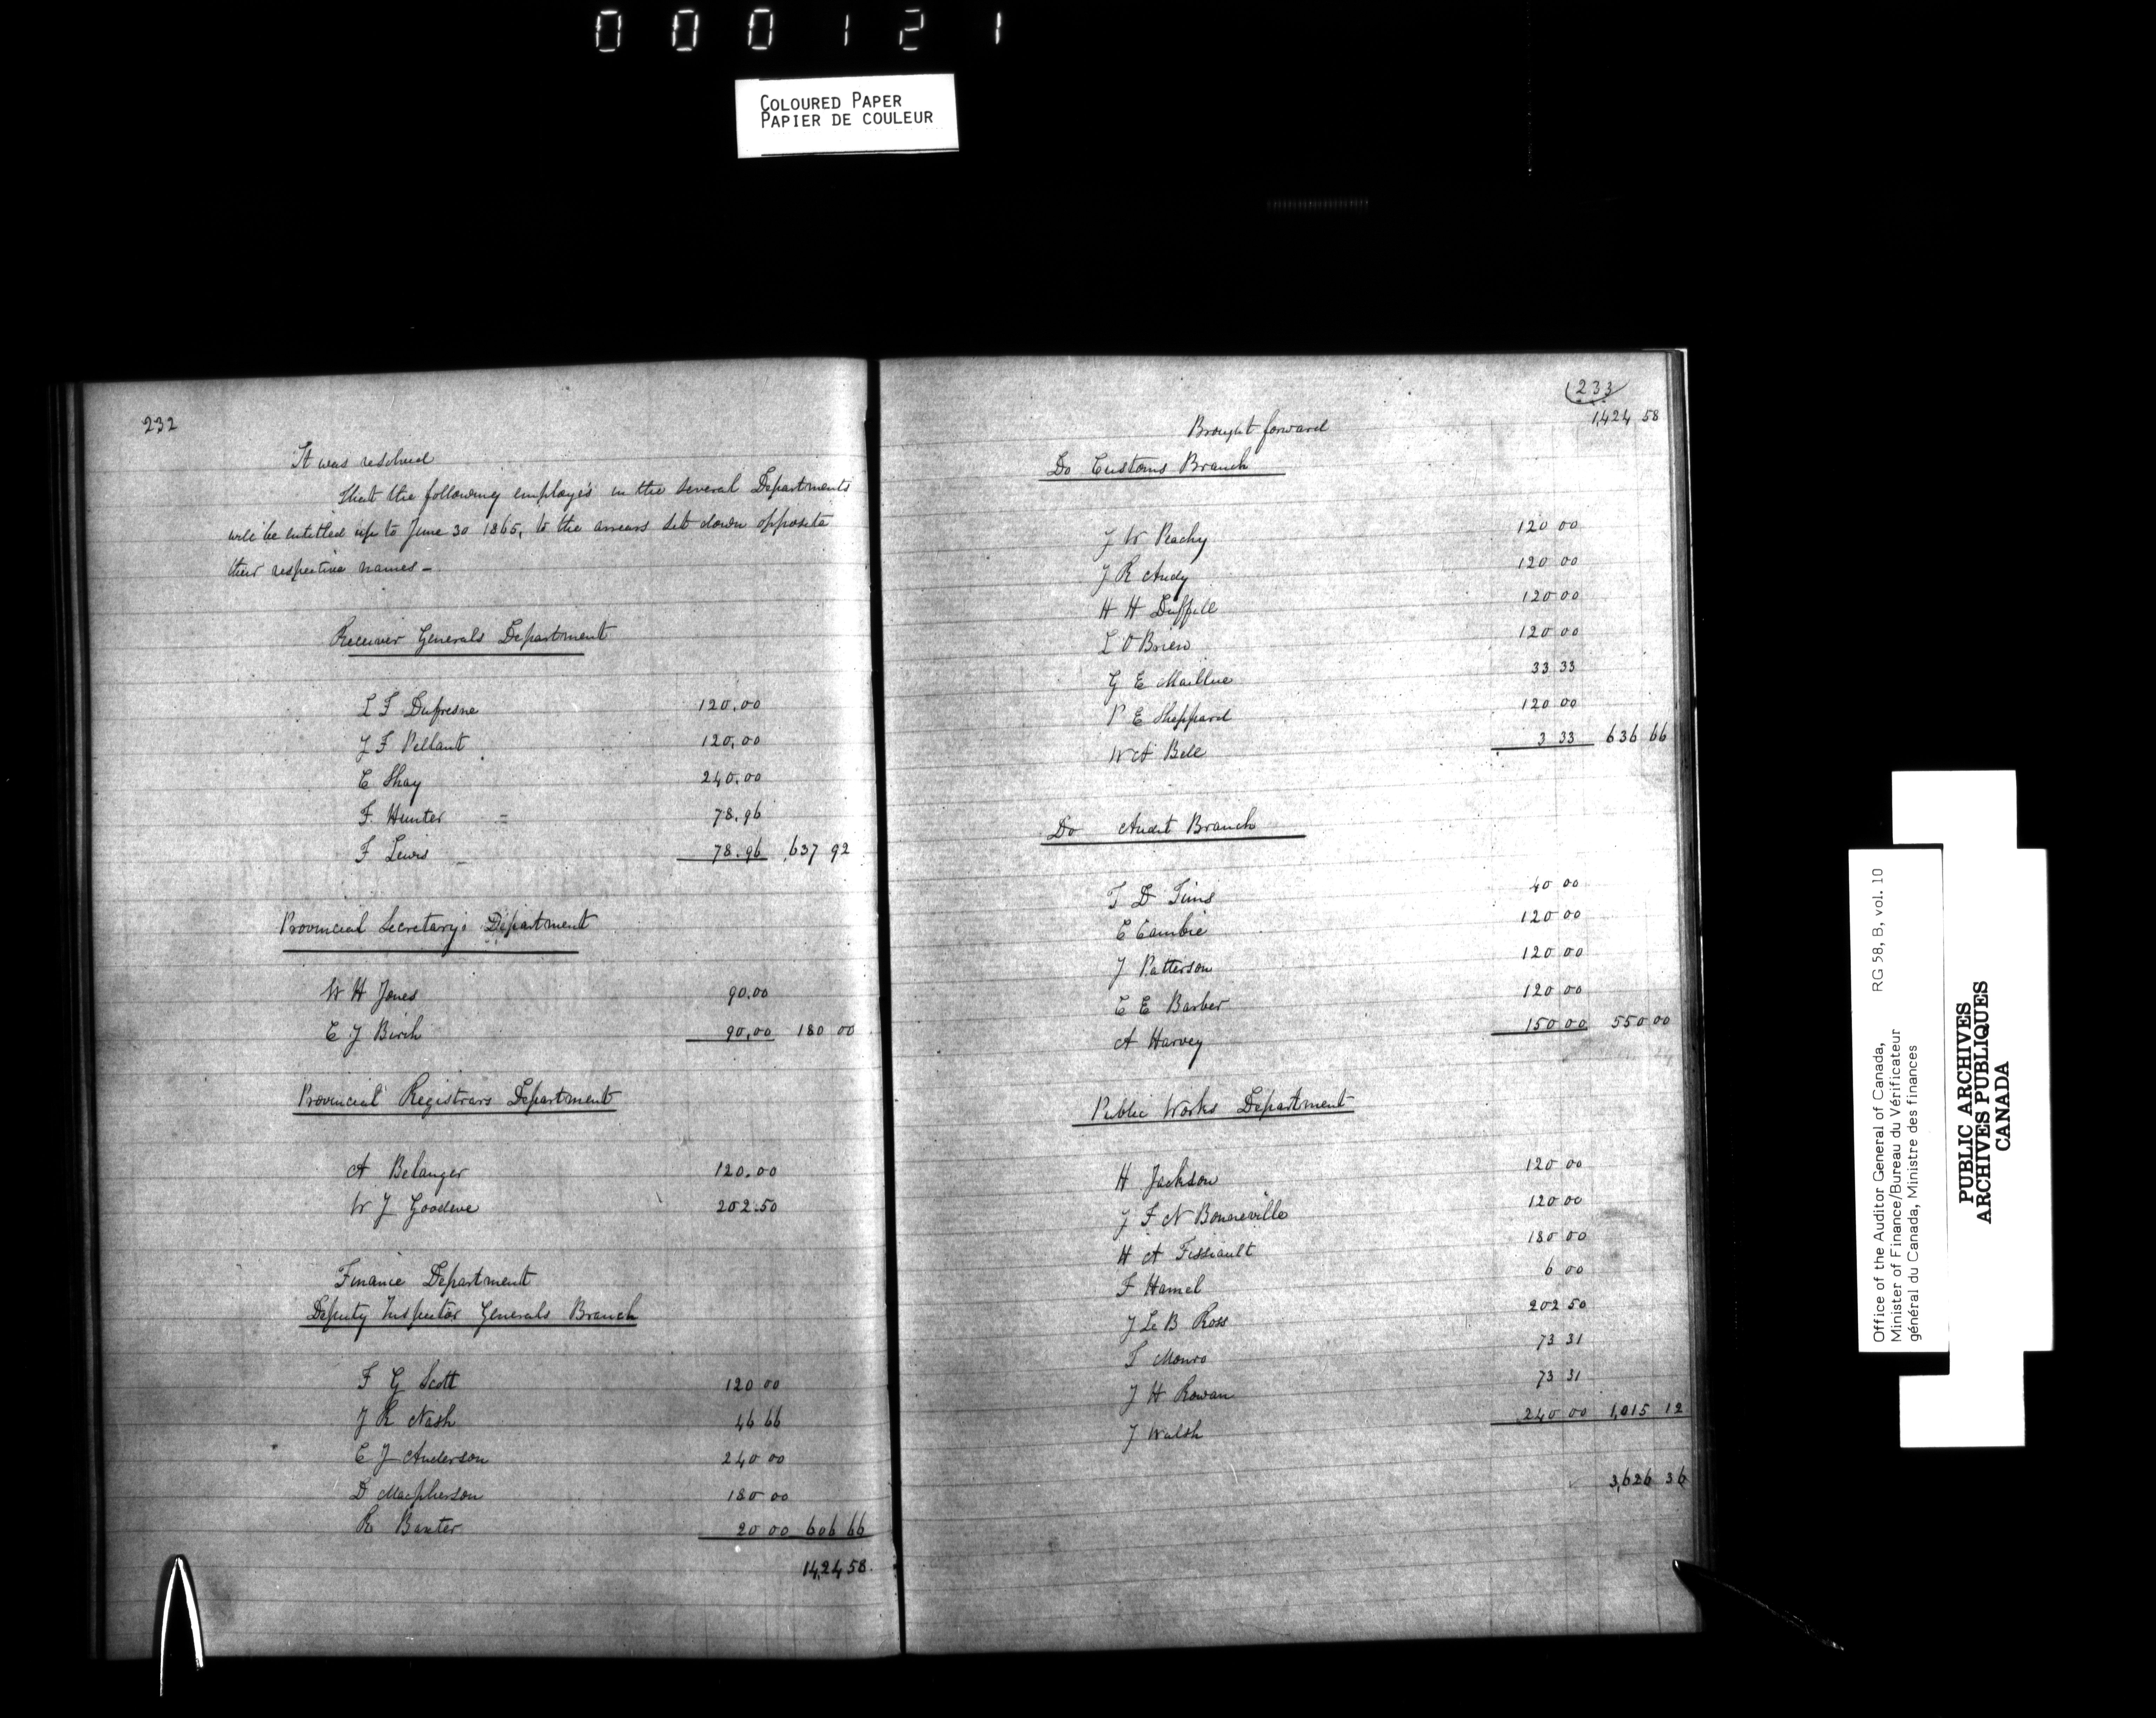 000121
COLOURED PAPER
PAPIER DE COULEUR
232
It was resolved
that the following employés in the several Departments
will be entitled up to June 30 1865, to the arrears set down opposite
their respective names -
Receiver Generals Department
L F Dufresne 120.00
J F Pellant 120.00
C Shay 240.00
F. Hunter = 78.96
F Lewis - 78.96 637 92
Provincial Secretarys Department
W H Jones 90.00
E J Birch 90.00 180 00
Provincial Registrars Department
A Belanger 120.00
W J Goodeve 202.50
Finance Department
Deputy Inspector Generals Branch
F G Scott 120 00
J R Nash 46 66
C J Anderson 240 00
D Macpherson 180 00
R Baxter 20 00 606 66
1,424 58
233
Brought forward 1,424 58
Do Customs Branch
J W Peachy 120 00
J R Audy 120 00
H H Duffill 120 00
L O'Brien 120 00
G E Maillue 33 33
P E Sheppard 120 00
W A Bell 3 33 636 66
Do Audit Branch
T D Tims 40 00
C Cambie 120 00
J Patterson 120 00
C E Barber 120 00
A Harvey 150 00 550 00
Public Works Department
H Jackson 120 00
J F N Bonneville 120 00
H A Fissiault 180 00
F Hamel 6 00
J Le B Ross 202 50
T Monro 73 31
J H Rowan 73 31
J Walsh 240 00 1,015 12
3,626 36
Office of the Auditor General of Canada, RG 58, B, vol. 10
Minister of Finance/Bureau du Vérificateur
général du Canada, Ministre des finances
PUBLIC ARCHIVES
ARCHIVES PUBLIQUES
CANADA